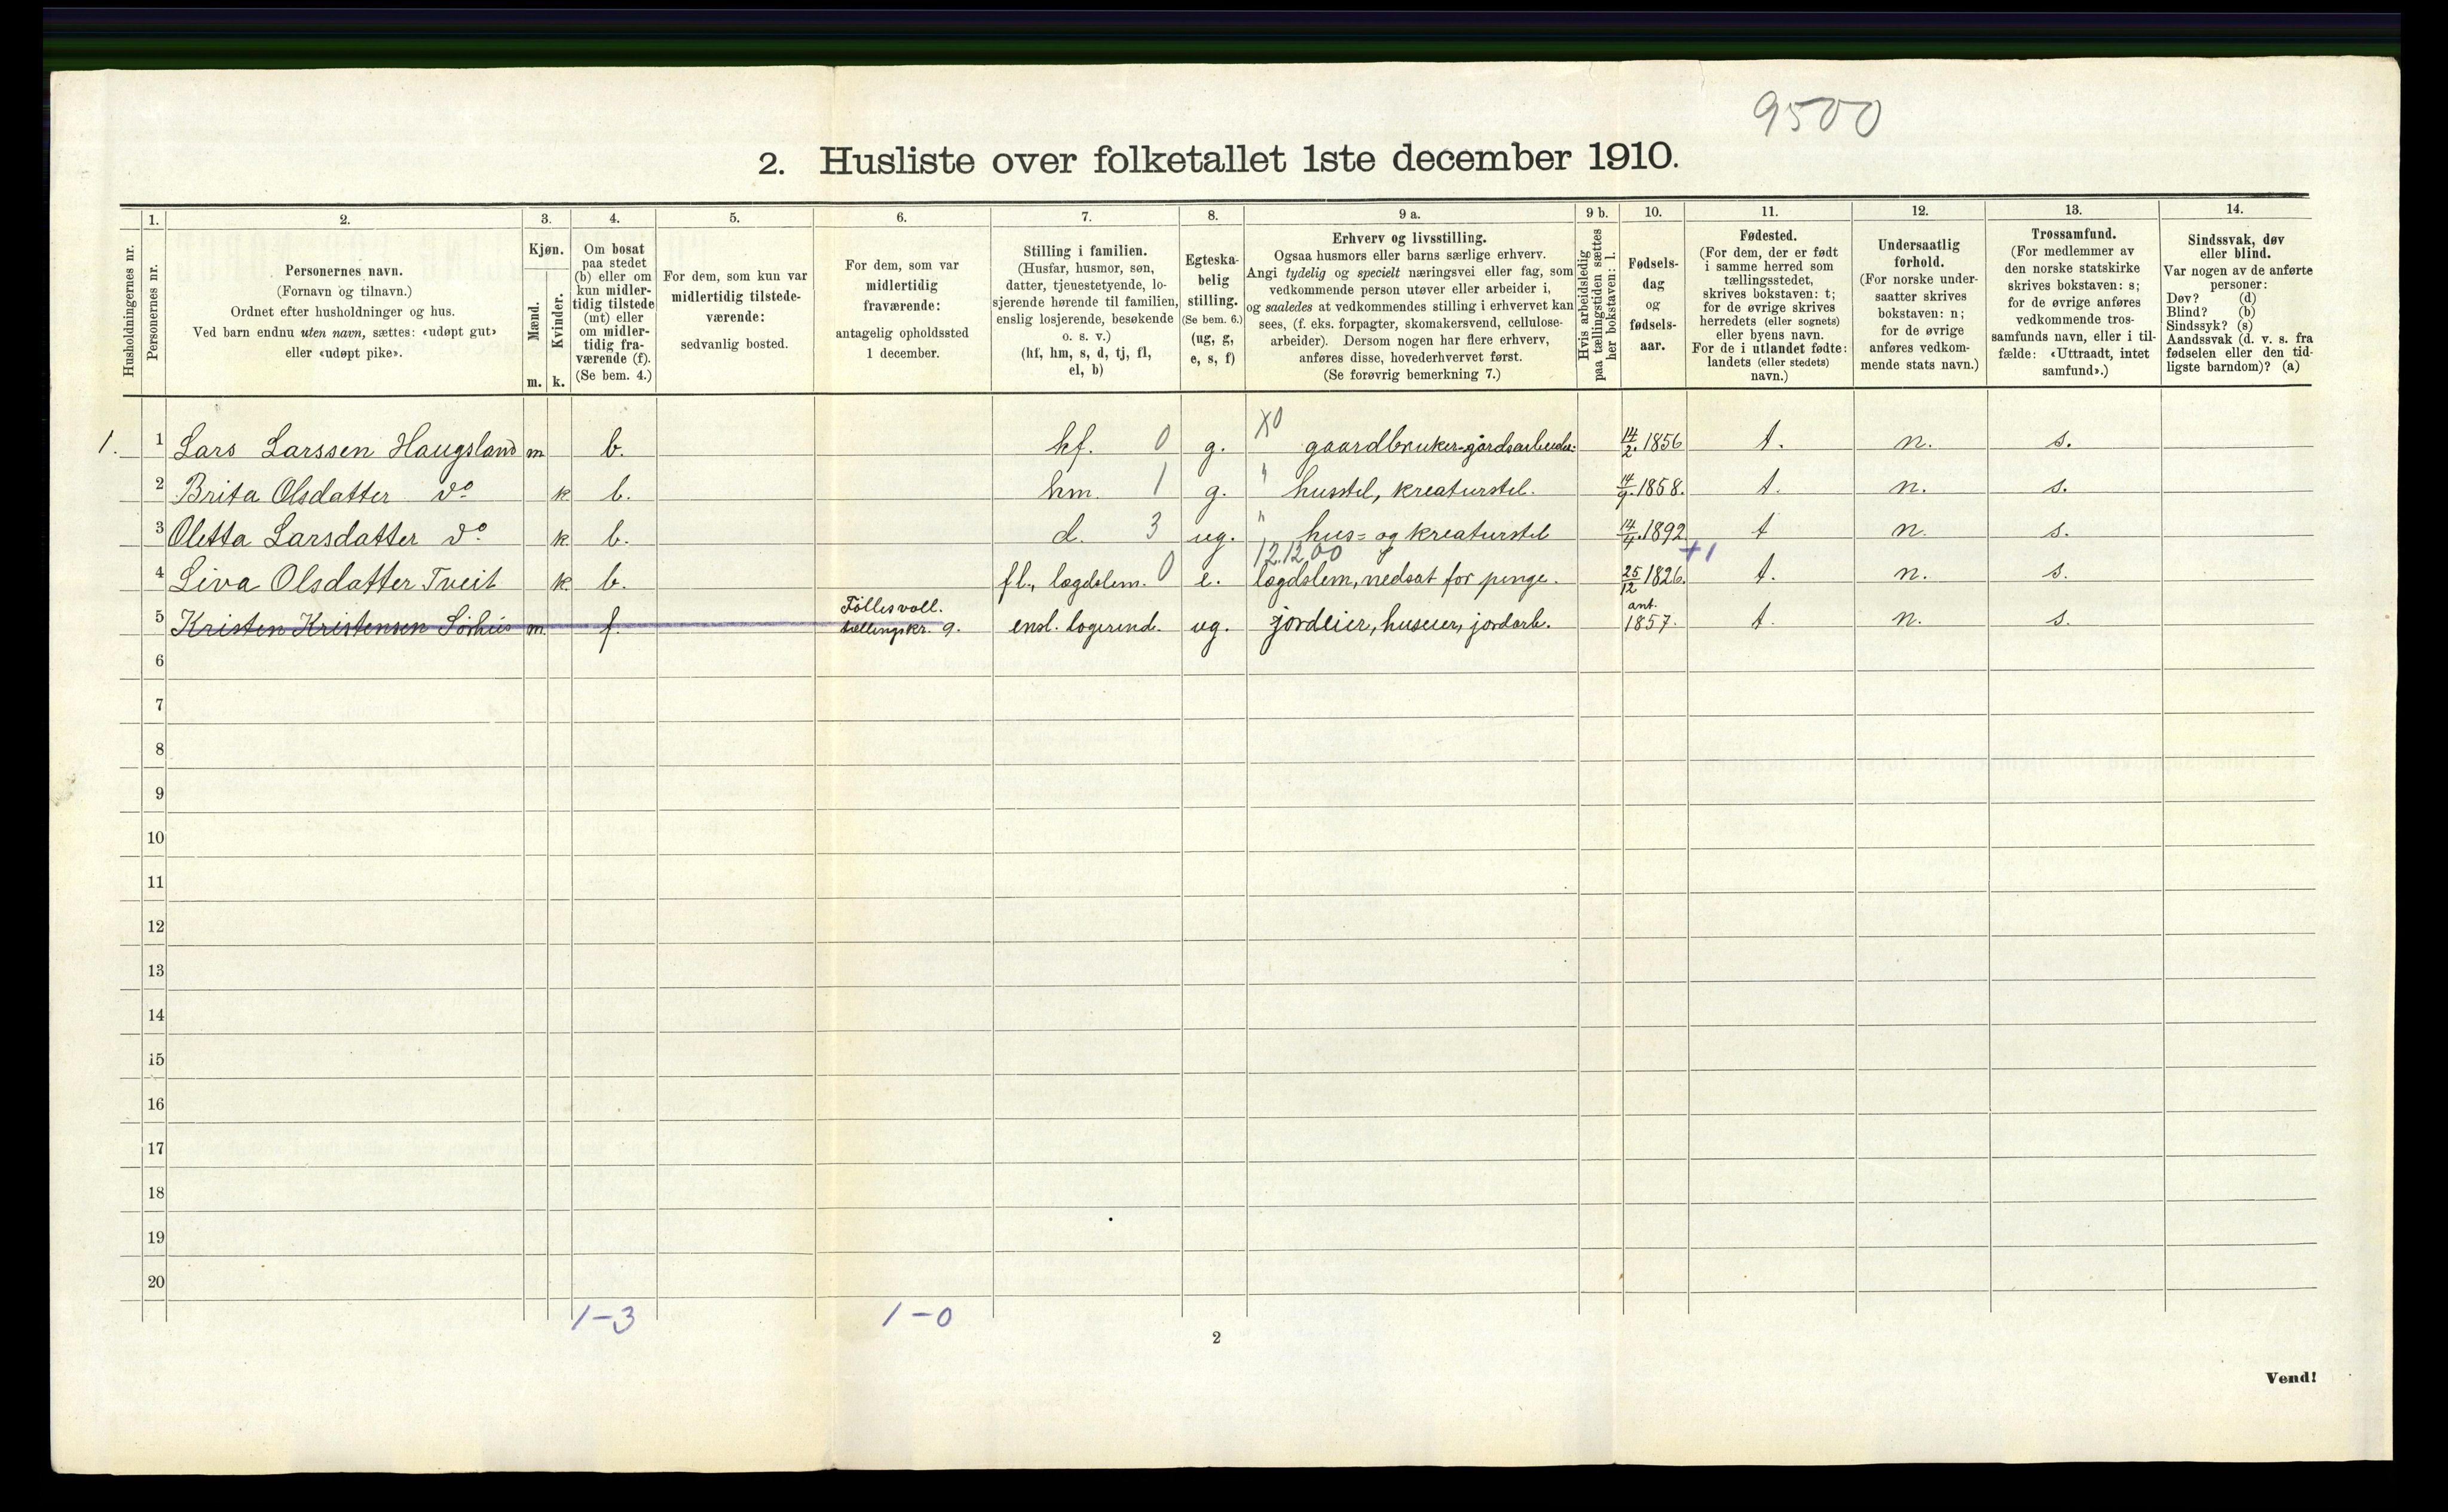 9500
2. Husliste over folketallet 1ste december 1910.
Husholdningernes nr.
1.
Personernes nr.
2.
Personernes navn.
(Fornavn og tilnavn.)
Ordnet efter husholdninger og hus.
Ved barn endnu uten navn, sættes: «udøpt gut»
eller «udøpt pike».
3.
Kjøn.
Mænd.
Kvinder.
m. k.
4.
Om bosat
paa stedet
(b) eller om
kun midler-
tidig tilstede
(mt) eller
om midler-
tidig fra-
værende (f).
(Se bem. 4.)
5.
For dem, som kun var
midlertidig tilstede-
værende:
sedvanlig bosted.
6.
For dem, som var
midlertidig
fraværende:
antagelig opholdssted
1 december.
7.
Stilling i familien.
(Husfar, husmor, søn,
datter, tjenestetyende, lo-
sjerende hørende til familien,
enslig losjerende, besøkende
o. s. v.)
(hf, hm, s, d, tj, fl,
el, b)
8.
Egteska-
belig
stilling.
(Se bem. 6.)
(ug, g,
e, s, f)
9 a.
Erhverv og livsstilling.
Ogsaa husmors eller barns særlige erhverv.
Angi tydelig og specielt næringsvei eller fag, som
vedkommende person utøver eller arbeider i,
og saaledes at vedkommendes stilling i erhvervet kan
sees, (f. eks. forpagter, skomakersvend, cellulose-
arbeider). Dersom nogen har flere erhverv,
anføres disse, hovederhvervet først.
(Se forøvrig bemerkning 7.)
9 b.
Hvis arbeidsledig
paa tællingstiden sættes
her bokstaven: l.
10.
Fødsels-
dag
og
fødsels-
aar.
11.
Fødested.
(For dem, der er født
i samme herred som
tællingsstedet,
skrives bokstaven: t;
for de øvrige skrives
herredets (eller sognets)
eller byens navn.
For de i utlandet fødte:
landets (eller stedets)
navn.)
12.
Undersaatlig
forhold.
(For norske under-
saatter skrives
bokstaven: n;
for de øvrige
anføres vedkom-
mende stats navn.)
13.
Trossamfund.
(For medlemmer av
den norske statskirke
skrives bokstaven: s;
for de øvrige anføres
vedkommende tros-
samfunds navn, eller i til-
fælde: «Uttraadt, intet
samfund».)
14.
Sindssvak, døv
eller blind.
Var nogen av de anførte
personer:
Døv? (d)
Blind? (b)
Sindssyk? (s)
Aandssvak (d. v. s. fra
fødselen eller den tid-
ligste barndom)? (a)
1. 1 Lars Larssen Haugsland m b. hf. 0 g. X0 gaardbruker-gårdsarbeider 14/2 1856 t. n. s.
2 Brita Olsdatter do k b. hm. 1 g. " husstel, kreaturstel. 14/9 1858. t. n. s.
3 Oletta Larsdatter do k. b. d. 3 ug. " hus- og kreaturstel 14/4 1892 t n. s.
12.12,00 +1
4 Liva Olsdatter Tveit k. b. fl., lægdslem. 0 e. lægdslem, nedsat for penge. 25/12 1826. t. n. s.
5 Kristen Kristensen Sörhus m. f. Föllesvoll. tællingskr. 9. ensl. logerend. ug. jordeier, huseier, jordarb. ant. 1857. t. n. s.
6
7
8
9
10
11
12
13
14
15
16
17
18
19
20
1-3 1-0
2
Vend!